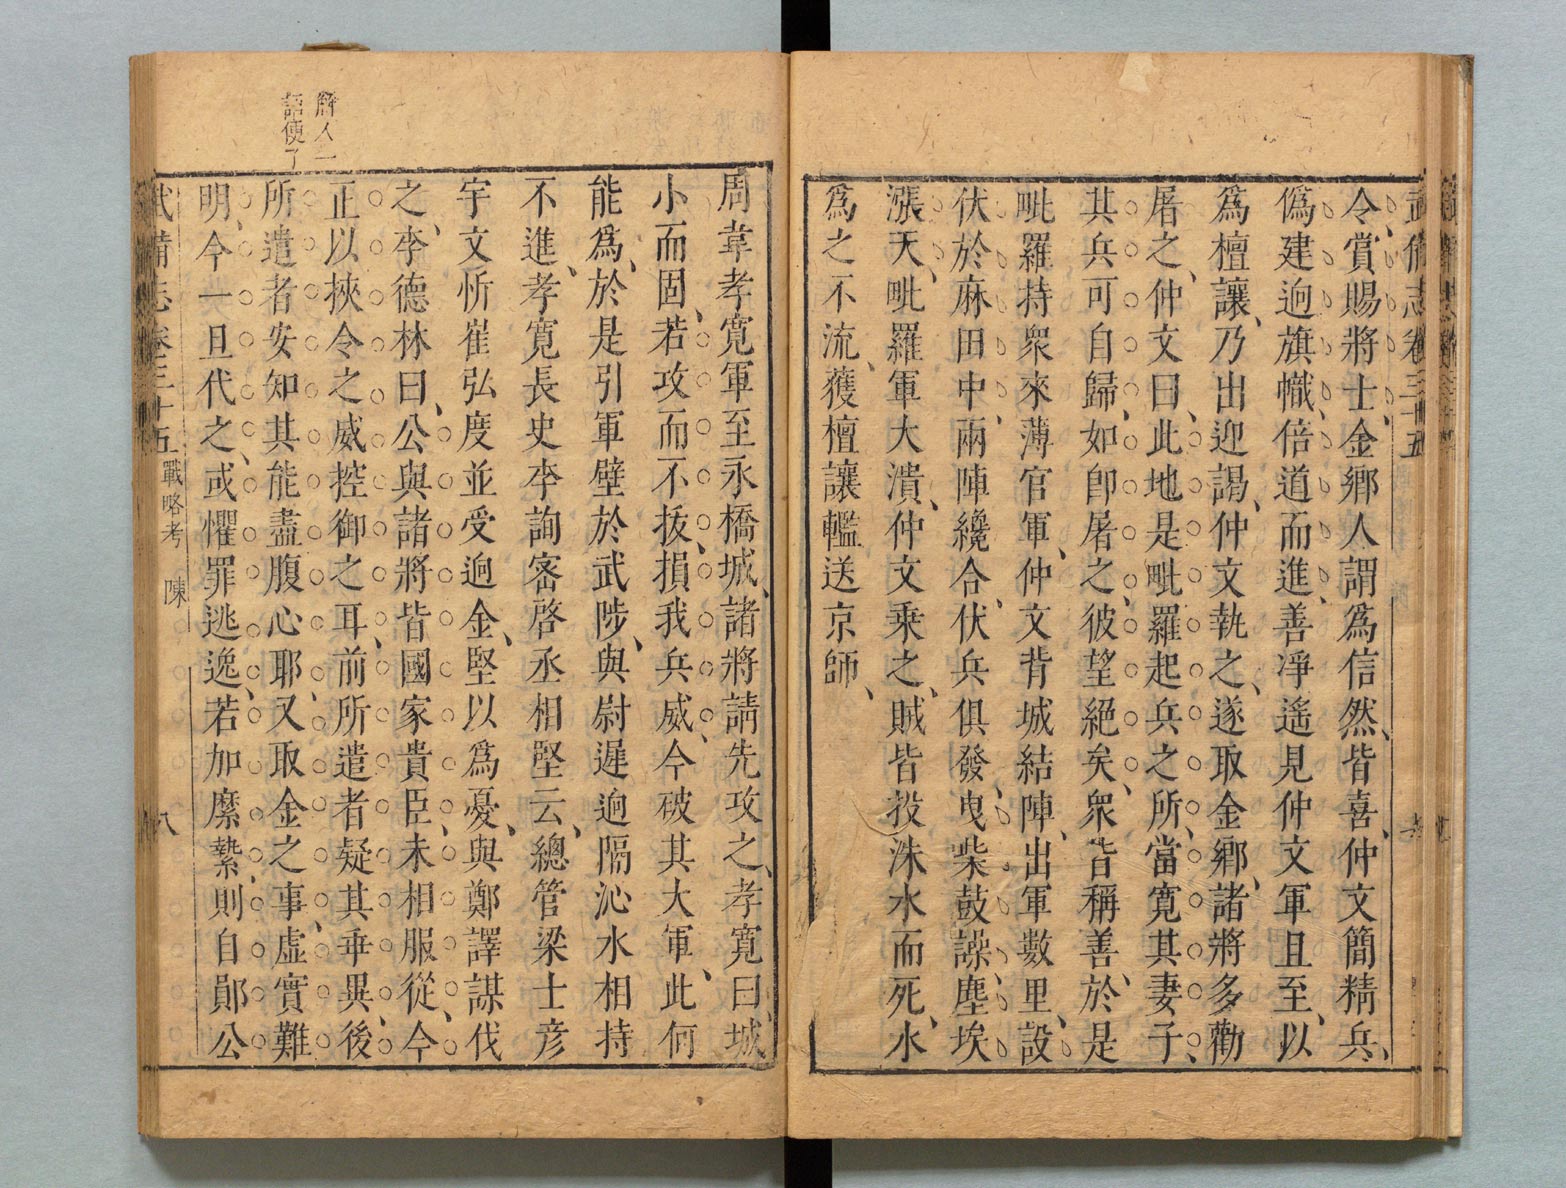 武備志卷三十五
令賞賜將士、金鄉人謂爲信然、皆喜、仲文簡精兵、
僞建迥旗幟、倍道而進、善淨遙見仲文軍且至、以
爲檀讓、乃出迎謁、仲文執之、遂取金鄉、諸將多勸
屠之、仲文曰、此地是毗羅起兵之所、當寬其妻子、
其兵可自歸、如卽屠之、彼望絕矣、衆皆稱善、於是
毗羅持衆來薄官軍、仲文背城結陣、出軍數里、設
伏於麻田中、兩陣纔合、伏兵俱發、曳柴鼓譟、塵埃
漲天、毗羅軍大潰、仲文乘之、賊皆投洙水而死、水
爲之不流、獲檀讓轞送京師、
周韋孝寬軍至永橋城、諸將請先攻之、孝寬曰、城
小而固、若攻而不拔、損我兵威、今破其大軍、此何
能爲、於是引軍壁於武陟、與尉遲迥隔沁水相持
不進、孝寬長史李詢密啓丞相堅云、總管梁士彥
宇文忻崔弘度並受迥金、堅以爲憂、與鄭譯謀伐
之、李德林曰、公與諸將皆國家貴臣、未相服從、今
正以挾令之威控御之耳、前所遣者疑其乖異、後
所遣者安知其能盡腹心耶、又取金之事、虛實難
明、今一旦代之、或懼罪逃逸、若加縻縶則自鄖公
人一
語便了
武備志卷三十五 戰略考 陳 八